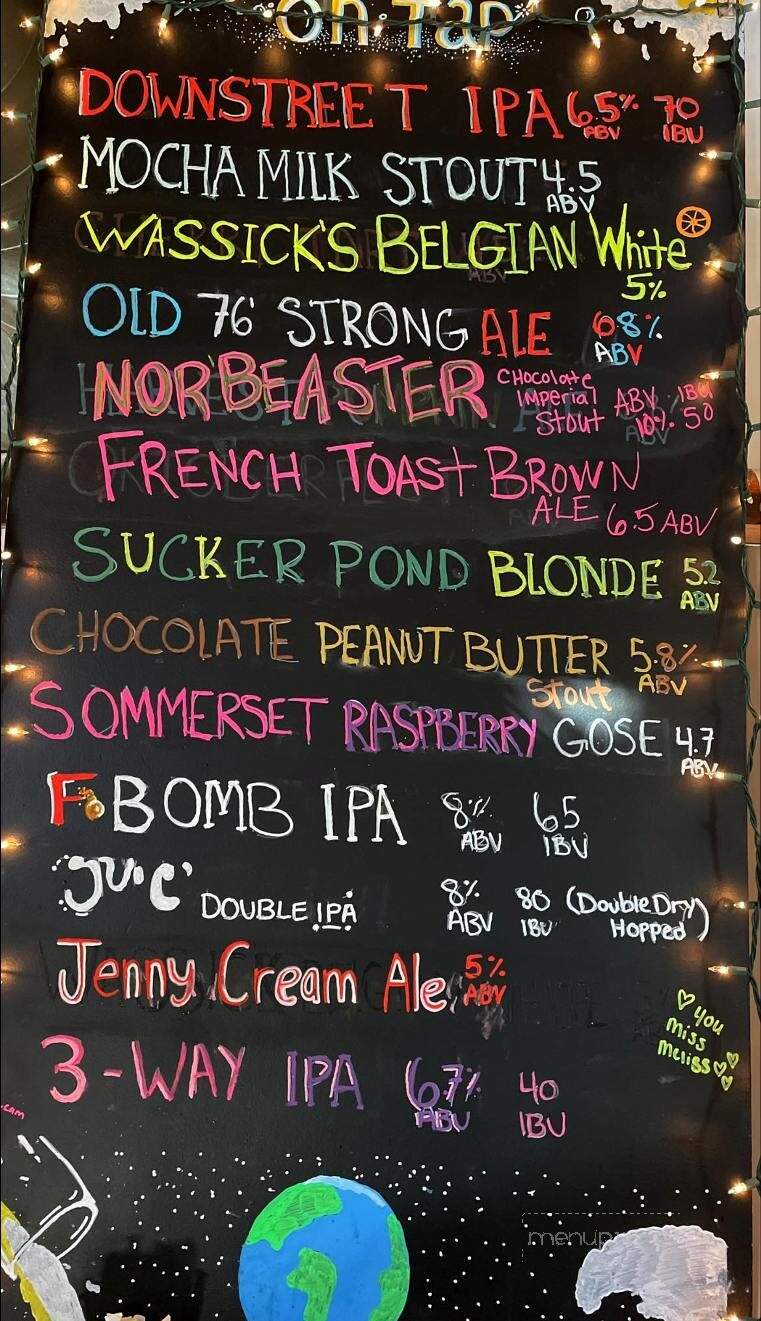 On Tap
DOWNSTREET IPA 6.5% ABV 70 IBU
MOCHA MILK STOUT 4.5 ABV
WASSICK'S BELGIAN White
5%
OLD 76' STRONG ALE 6.8% ABV
NOR'BEASTER CHocolate IMPerial Stout ABV 10% IBU 50
FRENCH TOAST BROWN
ALE 6.5 ABV
SUCKER POND BLONDE 5.2 ABV
CHOCOLATE PEANUT BUTTER 5.8% ABV
Stout
SOMMERSET RASPBERRY GOSE 4.7 ABV
F BOMB IPA 8% ABV 65 IBU
JUIC' DOUBLE IPA 8% ABV 80 IBU (Double Dry Hopped)
Jenny Cream Ale 5% ABV
you
miss
meliss
3-WAY IPA 6.7% ABV 40 IBU